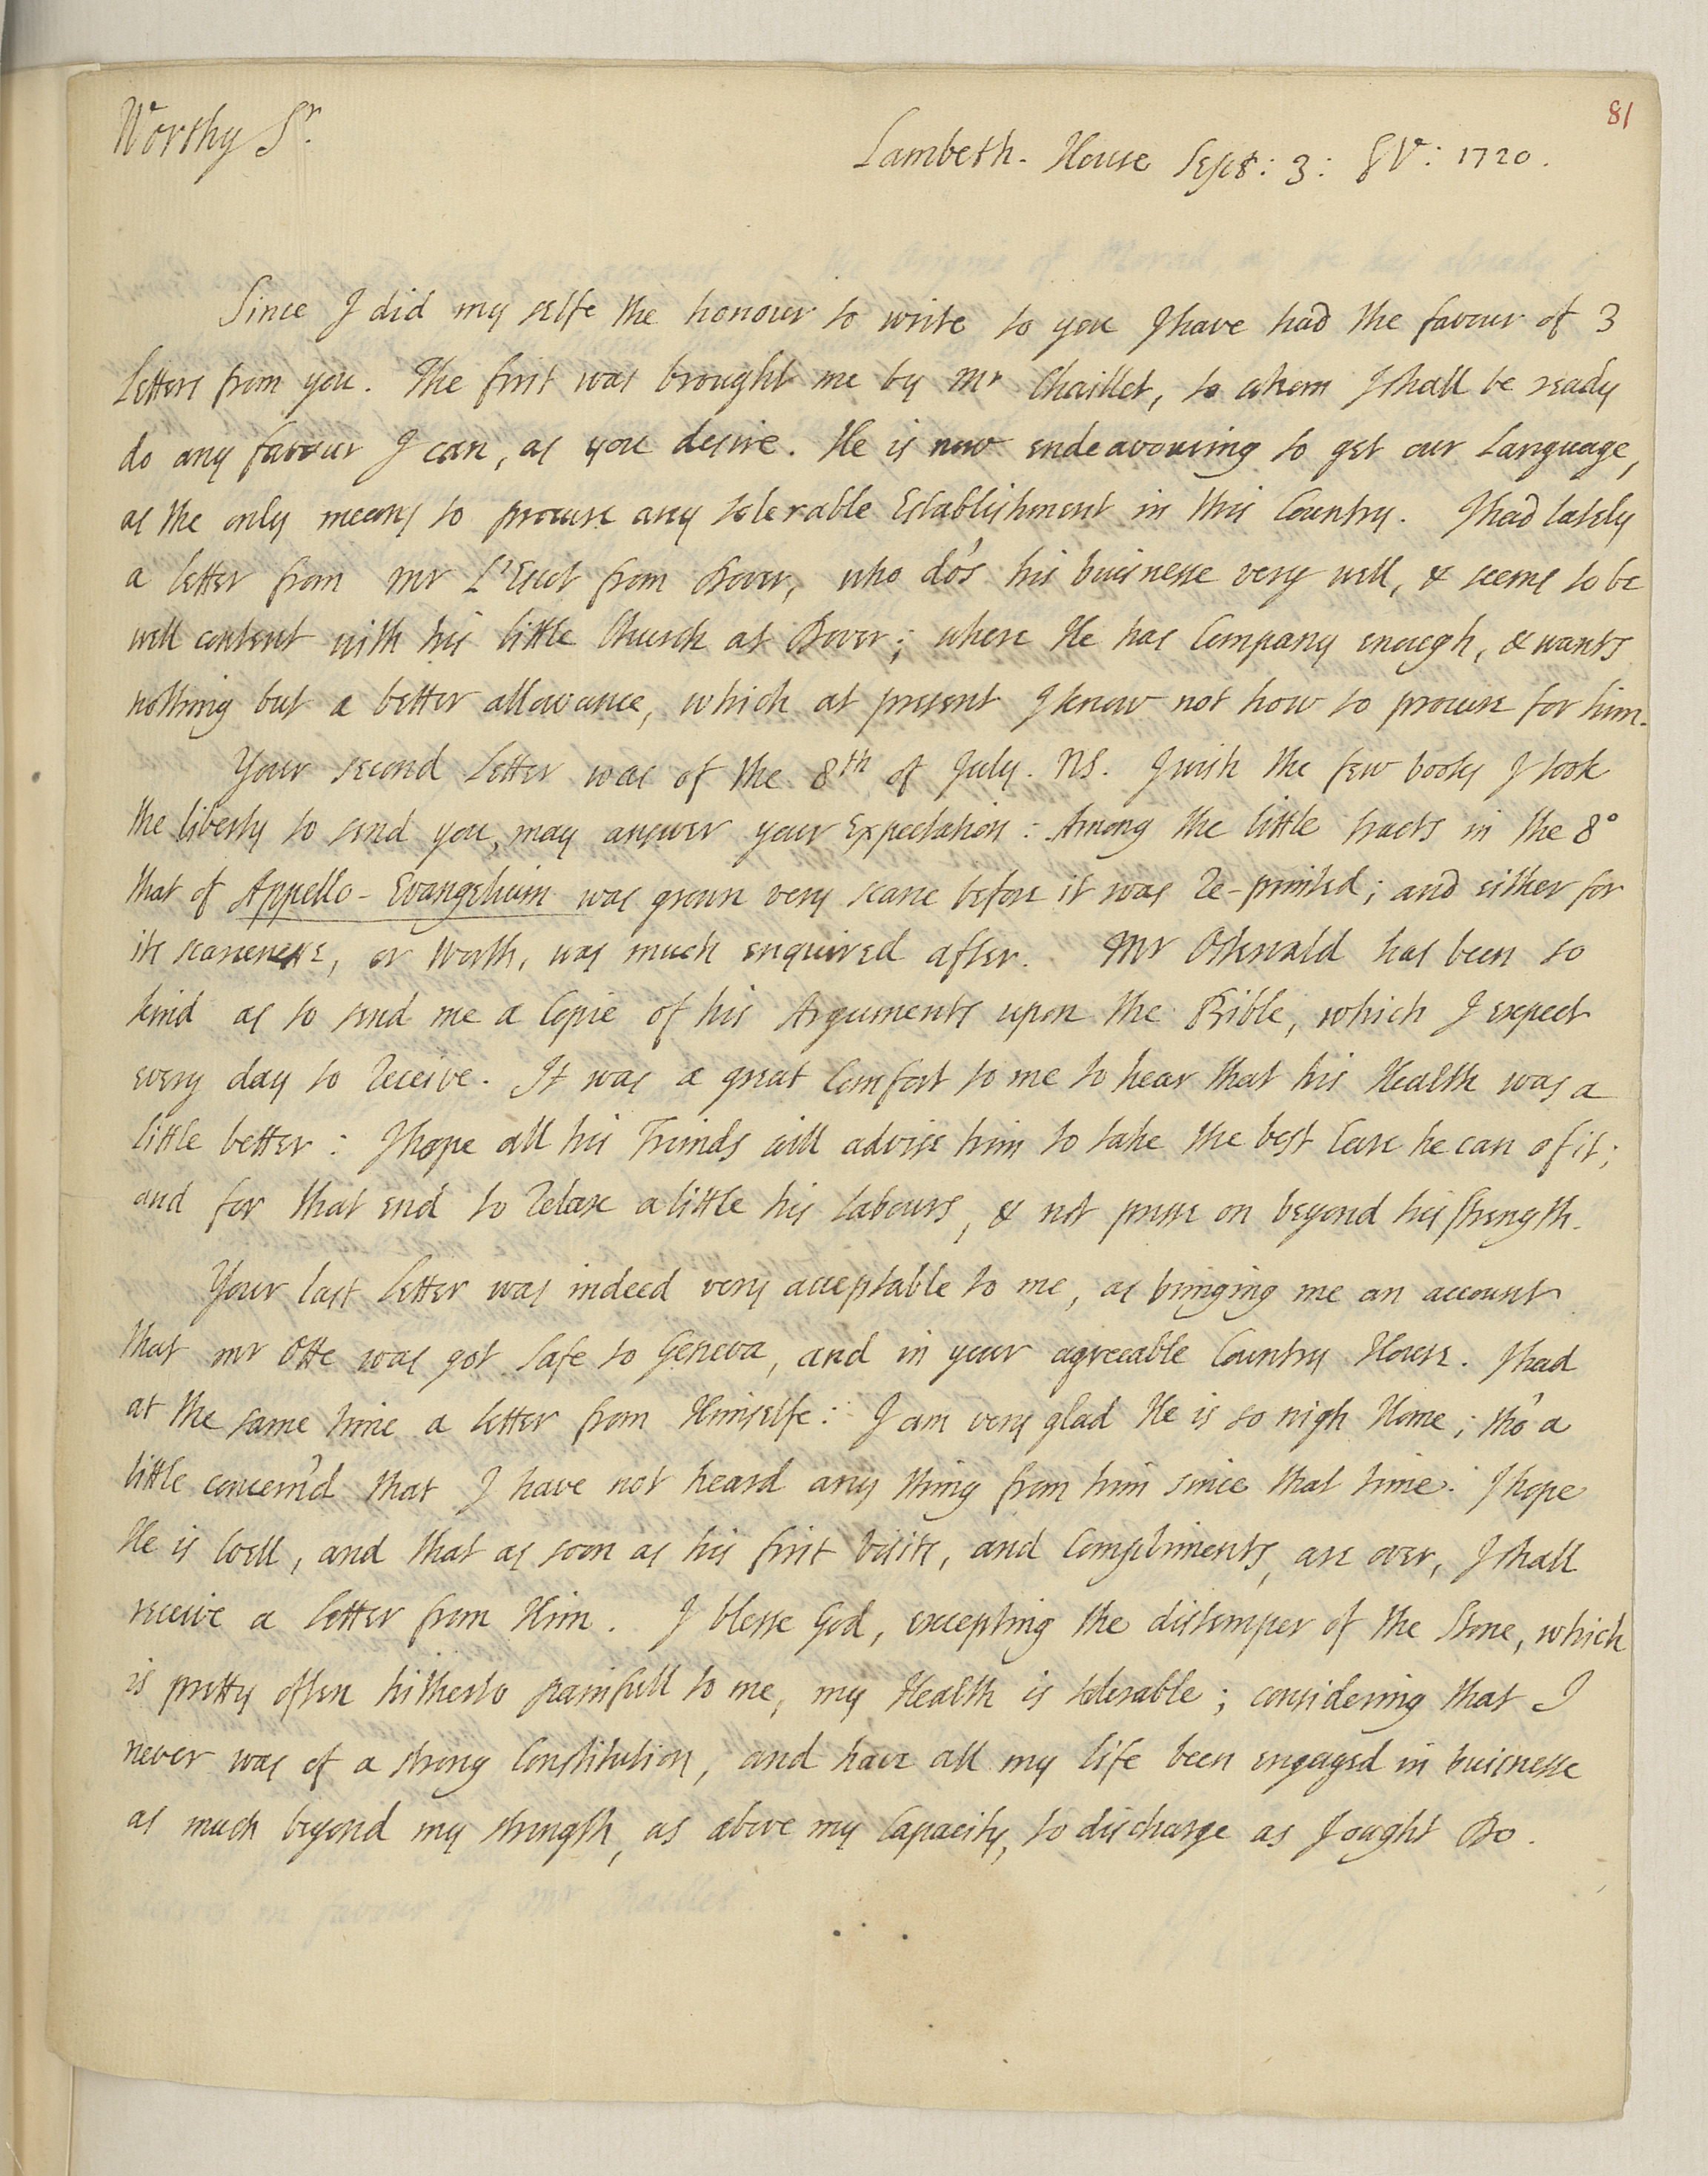 81
Worthy Sr.
Lambeth-House Sept: 3: SV: 1720.
Since I did my selfe the honour to write to you I have had the favour of 3
Letters from you. The first was brought me by Mr Chaillet, to whom I shall be ready
do any favour I can, as you desire. He is now endeavouring to get our Language,
as the only means to procure any tolerable Establishment in this Country. I had lately
a letter from Mr L'Escot from Dover, who do's his buisnesse very well, & seems to be
well content with his little Church at Dover; where He has Company enough, & wants
nothing but a better allowance, which at present I know not how to procure for him.
Your second Letter was of the 8th of July. NS. I wish the few books I took
the liberty to send you, may answer your Expectation: Among the little tracts in the 8°
that of Appello-Evangelium was grown very scarce before it was Re-printed; and either for
its scarcenesse, or Worth, was much enquired after. Mr Osterwald has been so
kind as to send me a Copie of his Arguments upon the Bible, which I expect
every day to Receive. It was a great Comfort to me to hear that his Health was a
little better: I hope all his Friends will advise him to take the best Care he can of it;
and for that end to Relax a little his Labours, & not presse on beyond his strength.
Your last Letter was indeed very acceptable to me, as bringing me an account
that Mr Otte was got safe to Geneva, and in your agreeable Country House. I had
at the same time a Letter from Himselfe: I am very glad He is so nigh Home; tho' a
little concern'd that I have not heard any thing from him since that time. I hope
He is well, and that as soon as his first Visits, and Compliments, are over, I shall
receive a Letter from Him. I blesse God, excepting the distemper of the Stone, which
is pretty often hitherto painfull to me, my Health is tolerable; considering that I
never was of a strong Constitution, and have all my life been engaged in buisnesse
as much beyond my strength, as above my Capacity, to discharge as I ought Do.